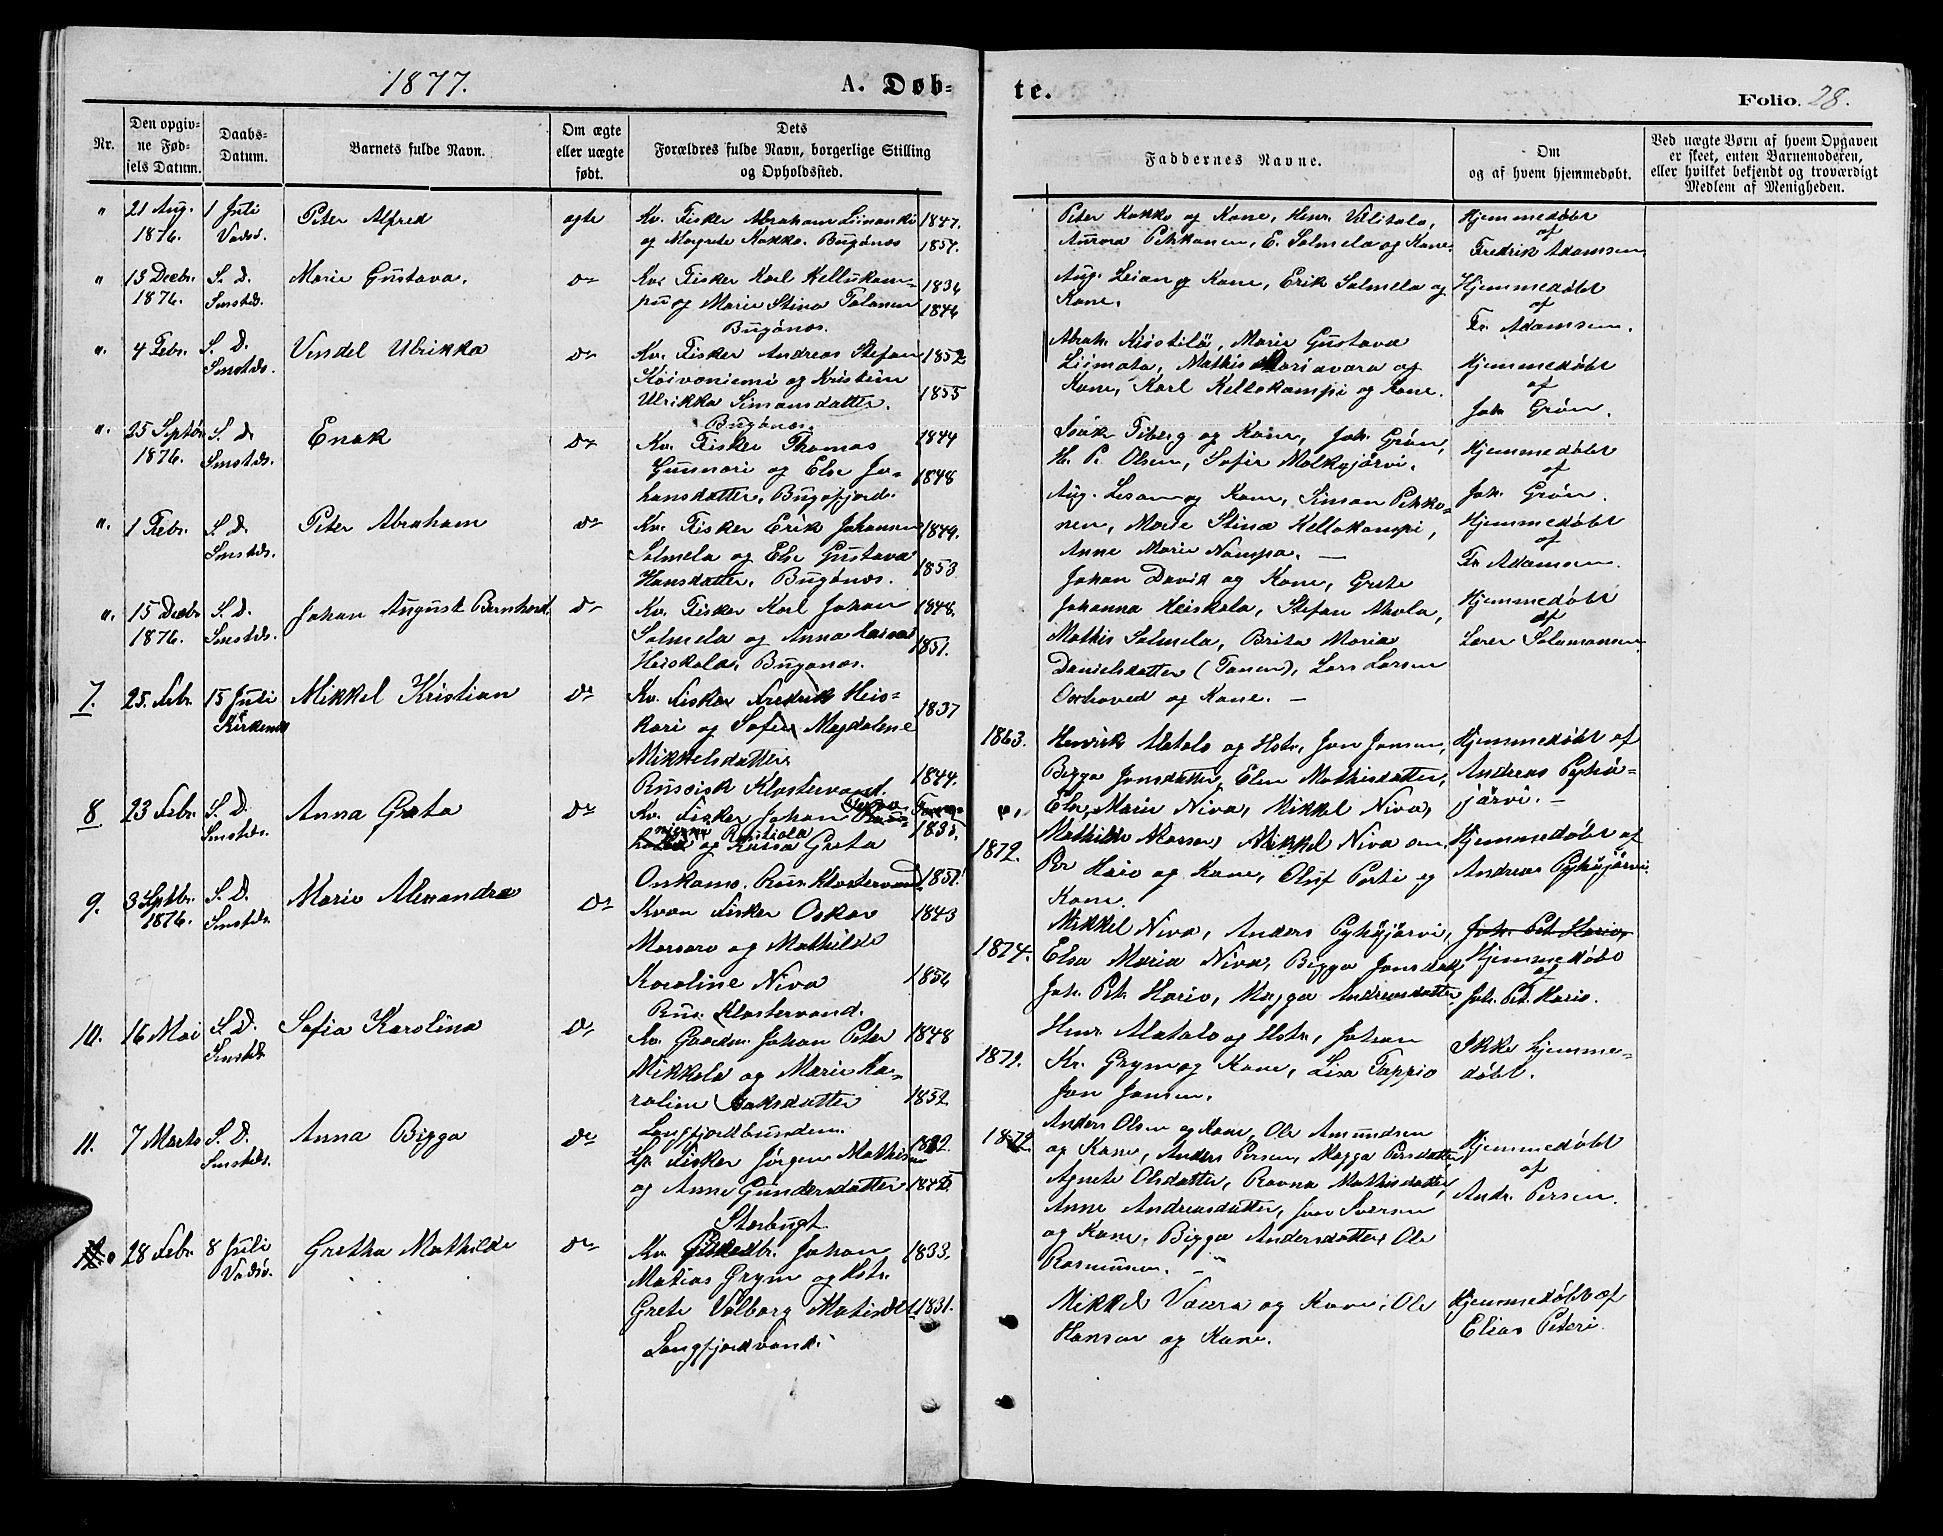 1877.
A. Døb-
te.
Folio. 28.
Nr.
Den opgiv-
ne Fød-
sels Datum.
Daabs-
Datum.
Barnets fulde Navn.
Om ægte
eller uægte
født.
Dets
Forældres fulde Navn, borgerlige Stilling
og Opholdssted.
Faddernes Navne.
Om
og af hvem hjemmedøbt.
Ved uægte Børn af hvem Opgaven
er skeet, enten Barnemoderen,
eller hvilket bekjendt og troværdigt
Medlem af Menigheden.
" 21 Aug. 1 Juli Peter Alfred ægte Kv. Fisker Abraham 1847.
1876. Vadsø. og Margrete Kokko. Bugønæs 1857.
Peter Kokko og Kone, Henr. Ylitalo,
Aurora Pekkonen, E. Salmela og Kone.
Hjemmedøbt
af
Fredrik Adamsen
" 15 Decbr. S. D. Marie Gustava. do Kv. Fisker Karl Kellokam-
1876. Smstds. pu og Marie Stina Talonen 1846
Bugønæs.
Aug. og Kone, Erik Salmela og
Kone.
Hjemmedøbt
af
Fr. Adamsen.
" 4 Febr. S. D. Vendel Ulrikka do Kv. Fisker Andreas Stefan 1852
Smstds. Koivoniemi og Kristiin
Ulrikka Simonsdatter. 1855
Bugønæs.
Abrah. Marie Gustava
Liimata, Mathis og
Kone, Karl Kellokampi og Kone.
Hjemmedøbt
af
Joh. Grøn.
" 25 Septbr. S. D. Enok do Kv. Fisker Thomas 1844
1876. Smstds. Gunnari og Else Jo-
hansdatter, Bugøfjord. 1848
Isak Friberg og Kone, Joh. Grøn,
H. P. Olsen, Sofie
Hjemmedøbt
af
Joh. Grøn.
" 1 Febr. S. D. Peter Abraham do Kv. Fisker Erik Johannes 1849.
Smstds. Salmela og Else Gustava
Hansdatter, Bugønæs. 1853
Aug. og Kone, Simon Pekko-
nen, Marie Stina Kellokampi,
Anne Marie Nampa. —
Hjemmedøbt
af
Fr. Adamsen.
" 15 Decbr. S. D. Johan August Bernhard. do Kv. Fisker Karl Johan 1848.
1876. Smstds. Salmela og Anna
Heiskala, Bugønæs. 1851.
Johan David og Kone, Grete
Johanna Heiskala, Stefan Ahola,
Mathis Salmela, Brita Maria
Danielsdatter (Tanen), Lars Larsen
Oxehoved og Kone. —
Hjemmedøbt
af
Salamonsen
7. 25. Febr. 15 Juli Mikkel Kristian do Kv. Fisker Fredrik Heis-
Kirkenes kari og Sofie Magdalene 1837
Mikkelsdatter
Russisk Klostervand. 1844.
1863. Henrik Alatalo og Hstr., Jon Jonsen,
Bigga Jonsdatter, Elen Mathisdatter,
Else Marie Niva, Mikkel Niva,
Hjemmedøbt af
Andreas Pyhä-
järvi. —
8 23 Febr. S. D. Anna Greta do Kv. Fisker Johan
Smstds. og Kaisa Greta 1835.
Onkamo. Rus. Klostervand 1851.
1872. Mathilde Morsare, Mikkel Niva
Per Hario og Kone, Oluf Porti og
Kone.
Hjemmedøbt af
Andreas Pyhäjärvi.
9. 3 Septbr. S. D. Marie Alexandra do Kvæn Fisker Oskar 1843
1876. Smstds. Morsare og Mathilde
Karoline Niva 1854
Rus. Klostervand.
1874. Mikkel Niva, Anders Pyhäjärvi,
Elsa Maria Niva, Bigga Jonsdatr,
Joh. Pet. Hario, Magga Andreasdatter
Joh. Pet. Hario,
Hjemmedøbt
af
Joh. Pet. Hario.
10. 16 Mai S. D. Sofia Karolina do Kv. Gaardm. Johan Peter 1848
Smstds. Mikkola og Marie Ka-
roline Isaksdatter 1852
Langfjordbunden.
1872. Henr. Alatalo og Hstr., Johan
Kr. Grym og Kone, Lisa Tappio
Jon Jonsen.
Ikke hjemme-
døbt.
11. 7 Marts S. D. Anna Bigga do Lp. Fisker Jørgen Mathisen
Smstds. og Anne Gundersdatter
Storbugt.
1872. Anders Olsen og Kone, Ole Amundsen
og Kone, Anders Persen, Magga Persdatter,
Agnete Olsdatter, Ravna Mathisdatter,
Anne Andreasdatter, Iver Iversen
og Kone, Bigga Andersdatter, Ole
Rasmussen.
Hjemmedøbt
af
Andr. Persen.
28 Febr. 8 Juli Gretha Mathilde do Kv. Johan 1833.
Vadsø. Matias Grym og Hstr.
Grete Valborg Matisdt. 1831.
Langfjordvand.
Mikkel Vaara og Kone, Ole
Hansen og Kone.
Hjemmedøbt af
Elias Peteri.